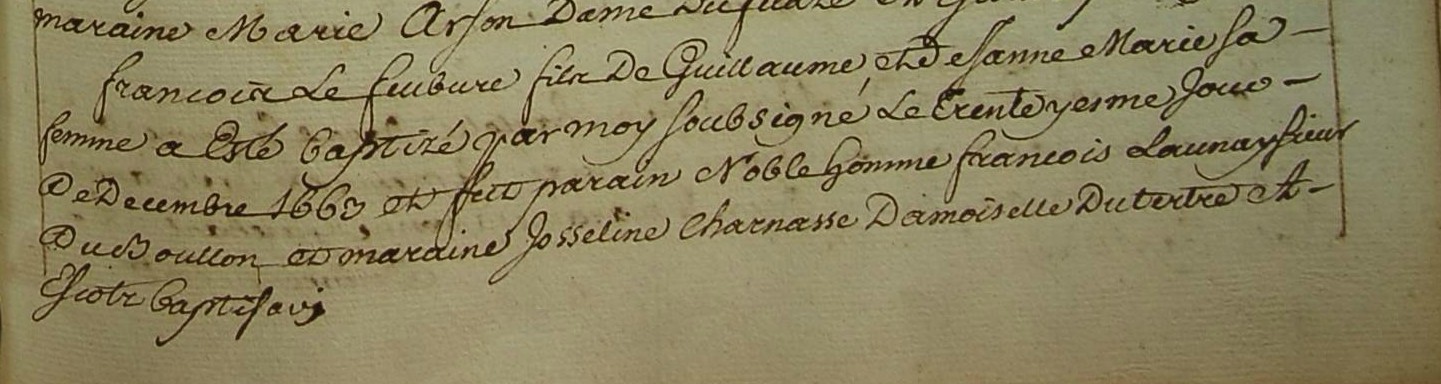 maraine Marie Arson Dame
francois Le feubure fils De Guillaume et de Janne Marie sa
femme a Esté baptizé par moy soubsigné Le trente yesme Jour
De Decembre 1663 et fut parain Noble homme francois Launay sieur
Du Boullon et maraine Josseline Charnasse Damoiselle Du tertre et
baptisavi